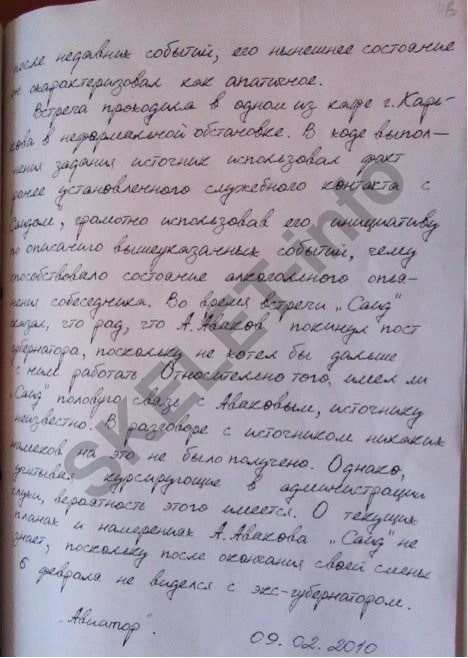 после недавних событий, его нынешнее состояние
он охарактеризовал как апатичное.
Встреча проходила в одном из кафе г. Харь-
кова в неформальной обстановке. В ходе выпол-
нения задания источник использовал факт
ранее установленного служебного контакта с
„Саидом“, грамотно использовав его инициативу
по описанию вышеуказанных событий, чему
способствовало состояние алкогольного опья-
нения собеседника. Во время встречи „Саид“
сказал, что рад, что А. Аваков покинул пост
губернатора, поскольку не хотел бы дальше
с ним работать. Относительно того, имел ли
„Саид“ половую связь с Аваковым, источнику
неизвестно. В разговоре с источником никаких
намеков на это не было получено. Однако,
учитывая курсирующие в администрации
слухи, вероятность этого имеется. О текущих
планах и намерениях А. Авакова „Саид“ не
знает, поскольку после окончания своей смены
6 февраля не виделся с экс-губернатором.
„Авиатор“.
09.02.2010
SKELET-info